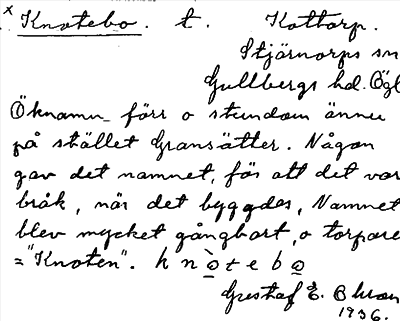 x Knotebo. t. Kottorp.
Stjärnorps sn
Gullbergs hd. Ögl
Öknamn förr o stundom ännu
på stället Gransätter. Någon
gav det namnet, för att det var
bråk, när det byggdes, Namnet
blev mycket gångbart, o torpare
="Knoten". k n o t e b o
Gustaf E.
1936.